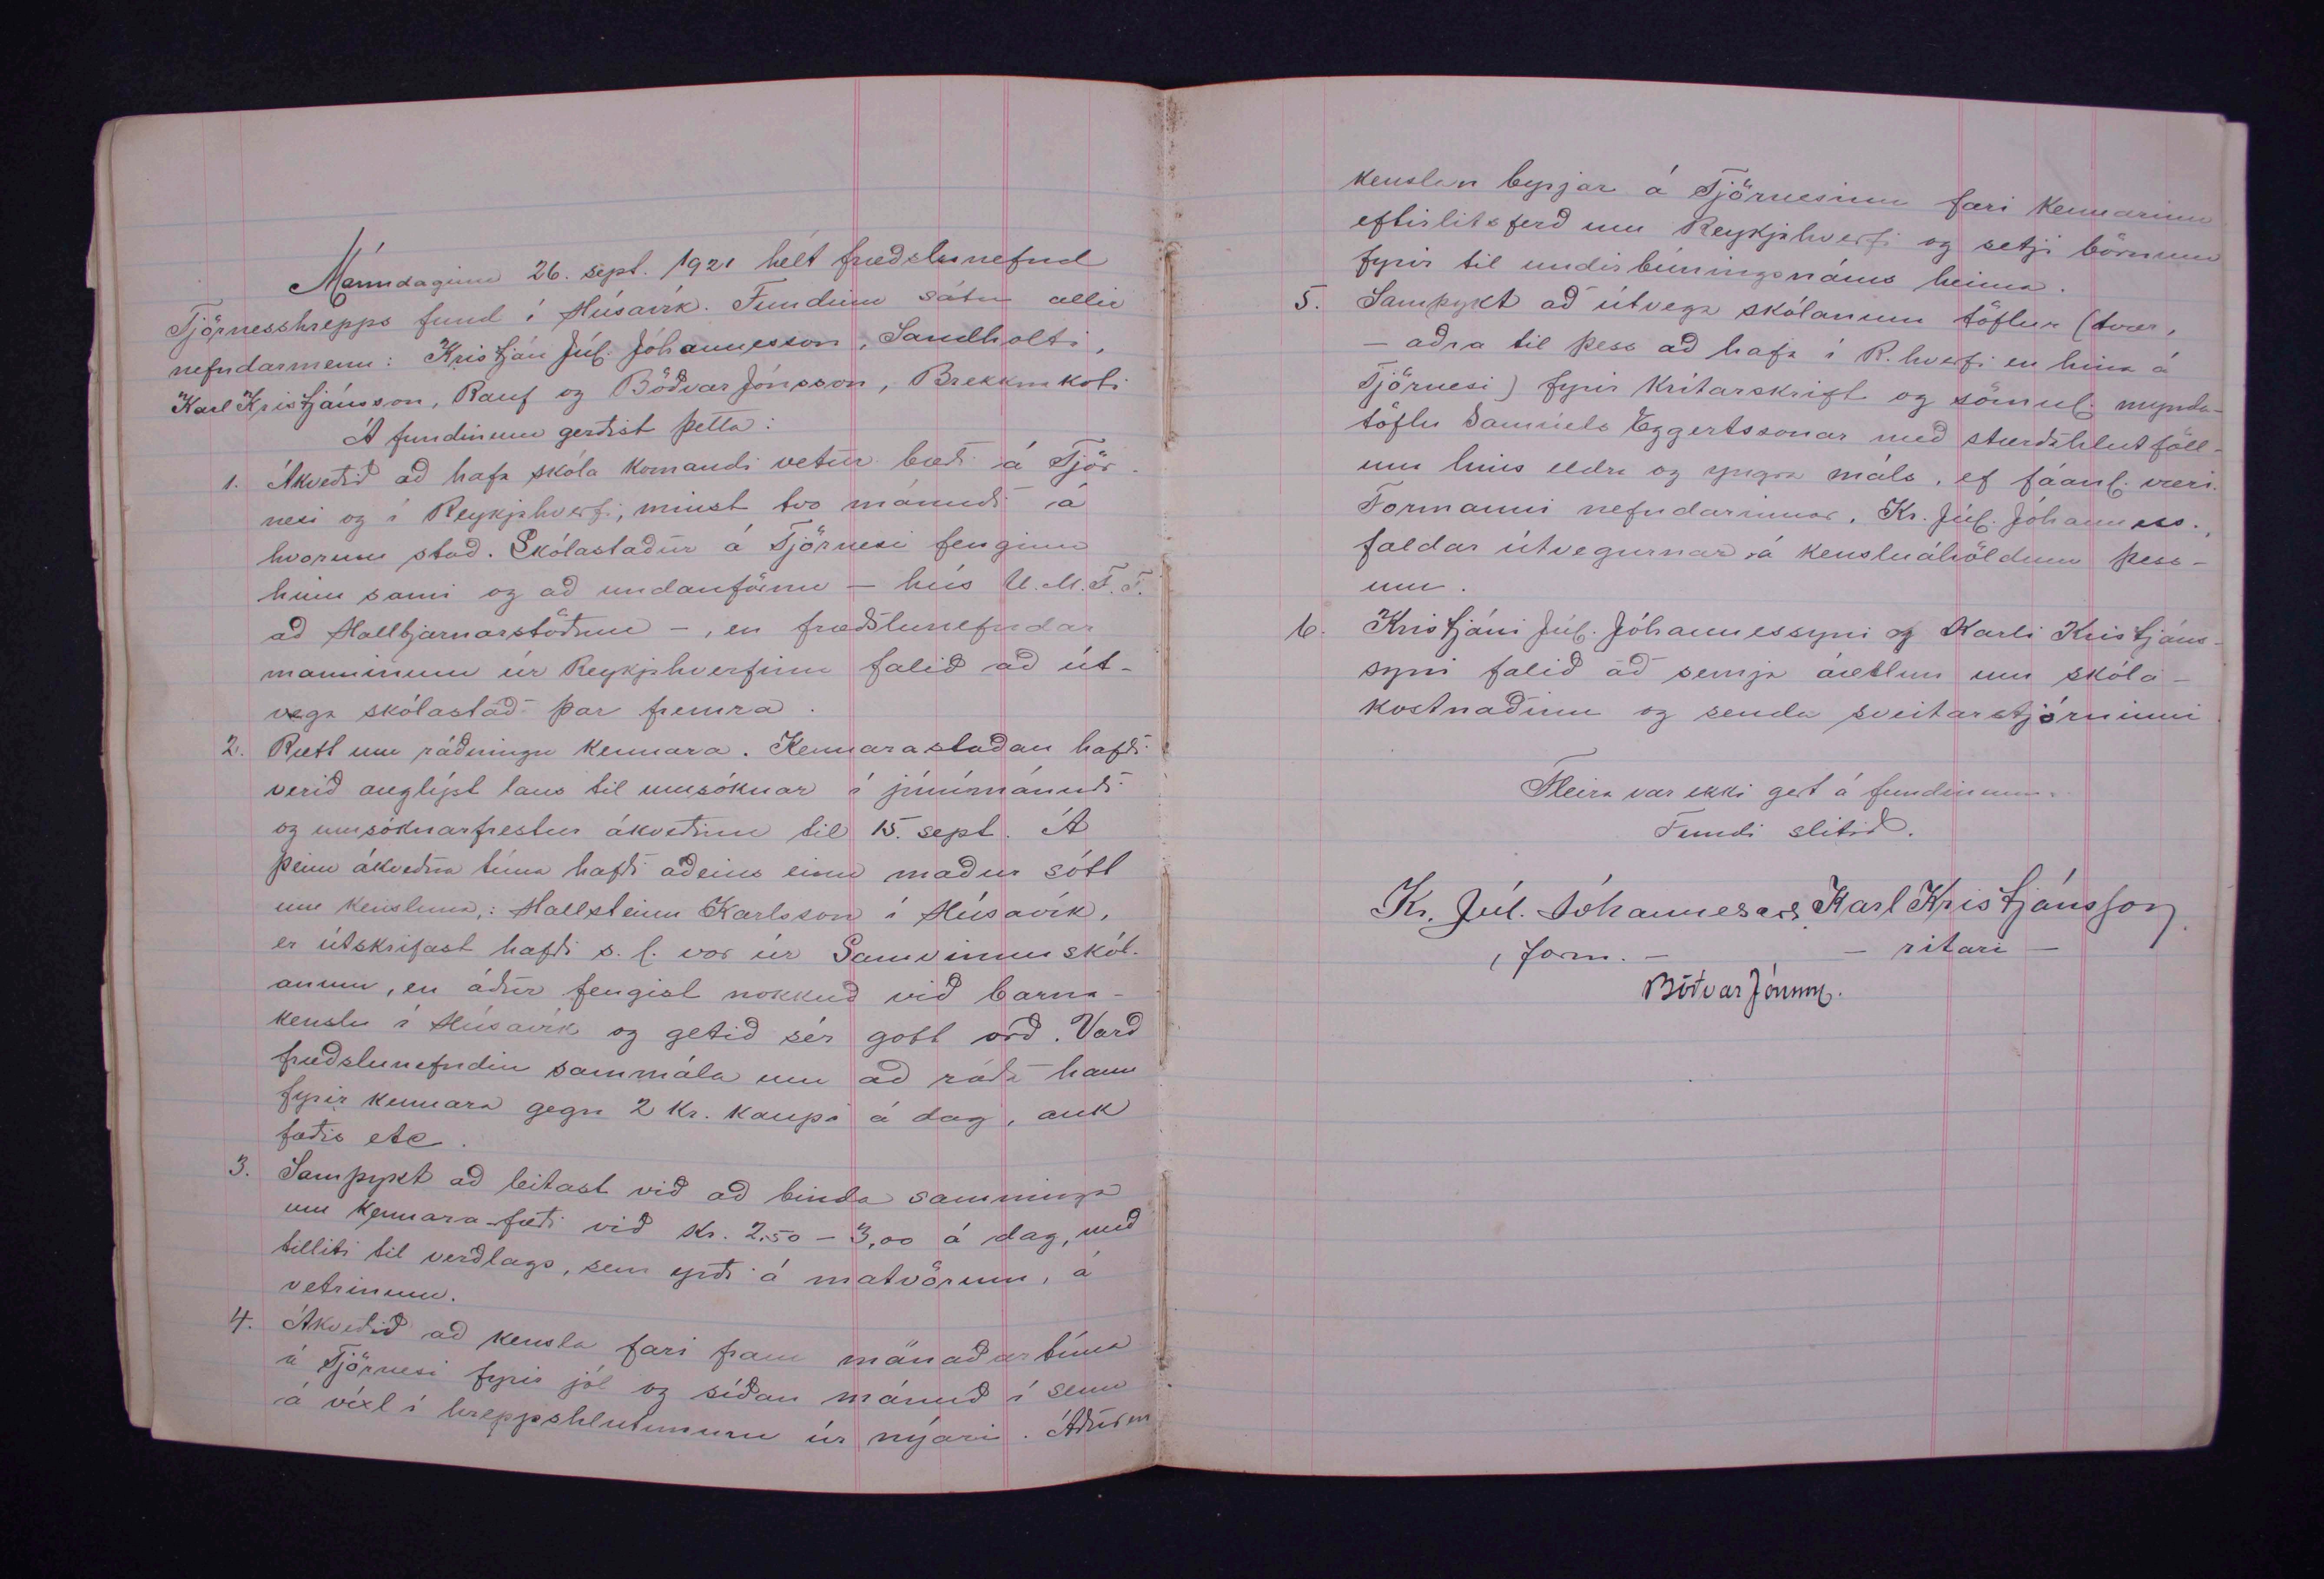 Mánudaginn 26. sept. 1921 hélt fræðslunefnd
Tjörnesshrepps fund í Húsavík. Fundinn sátu allir
nefndarmenn: Kristján Júl. Jóhannesson, Sandholti,
Karl Kristjánsson, Rauf og Böðvar Jónsson, Brekknakoti
Á fundinum gerðist þetta:
1. Ákveðið að hafa skóla komandi vetur bæði á Tjör-
nesi og í Reykjahverfi, minst tvo mánuði á
hvorum stað. Skólastaður á Tjörnesi fenginn
hinn sami og að undanförnu — hús U.M.F.T.
að Hallbjarnarstöðum —, en fræðslunefndar
manninum úr Reykjahverfinu falið að út-
vega skólastað þar fremra.
2. Rætt um ráðningu kennara. Kennarastaðan hafði
verið auglýst laus til umsóknar í júnímánuði
og umsóknarfrestur ákveðinn til 15. sept. Á
þeim ákveðna tíma hafði aðeins einn maður sótt
um kensluna,: Hallsteinn Karlsson í Húsavík,
er útskrifast hafði s.l. vor úr Samvinnuskól-
anum, en áður fengist nokkuð við barna-
kenslu í Húsavík og getið sér gott orð. Varð
fræðslunefndin sammála um að ráða hann
fyrir kennara gegn 2 kr. kaupi á dag, auk
fæðis etc.
3. Samþykt að leitast við að binda samninga
um kennara-fæði við kr. 2.50 - 3,00 á dag, með
tilliti til verðlags, sem yrði á matvörum, á
vetrinum.
4. Ákveðið að kensla fari fram mánaðartíma
á Tjörnesi fyrir jól og síðan mánuð í senn
á víxl í hreppshlutunum úr nýári. Áður en
kenslan byrjar á Tjörnesinu fari kennarinn
eftirlitsferð um Reykjahverfi og setji börnum
fyrir til undirbúningsnáms heima.
5. Samþykt að útvega skólanum töflur (tvær,
— aðra til þess að hafa í R.hverfi en hina á
Tjörnesi) fyrir krítarskrift og sömul. mynda-
töflu Samúels Eggertssonar með stærðshlutföll-
um hins eldra og yngra máls, ef fáanl. væri.
Formanni nefndarinnar, Kr. Júl. Jóhanness.,
faldar útvegurnar á kensluáhöldum þess-
um.
6. Kristjáni Júl. Jóhannessyni og Karli Kristjáns-
syni falið að semja áætlun um skóla-
kostnaðinn og senda sveitarstjórninni
Fleira var ekki gert á fundinum.
Fundi slitið.
Kr. Júl. Jóhanness. Karl Kristjánsson
, form. — — ritari —
Böðvar Jónsson.